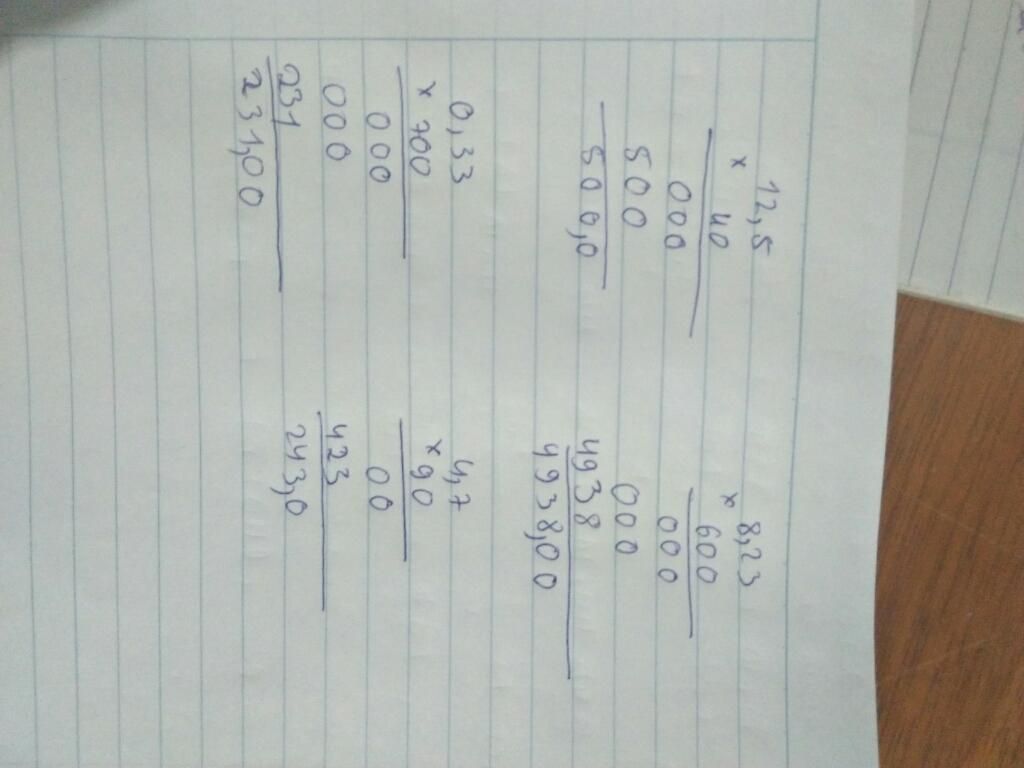 12,5
x 40
000
500
500,0
8,23
x 600
000
000
4938
4938,00
0,33
x 700
000
000
231
231,00
4,7
x 90
00
423
243,0